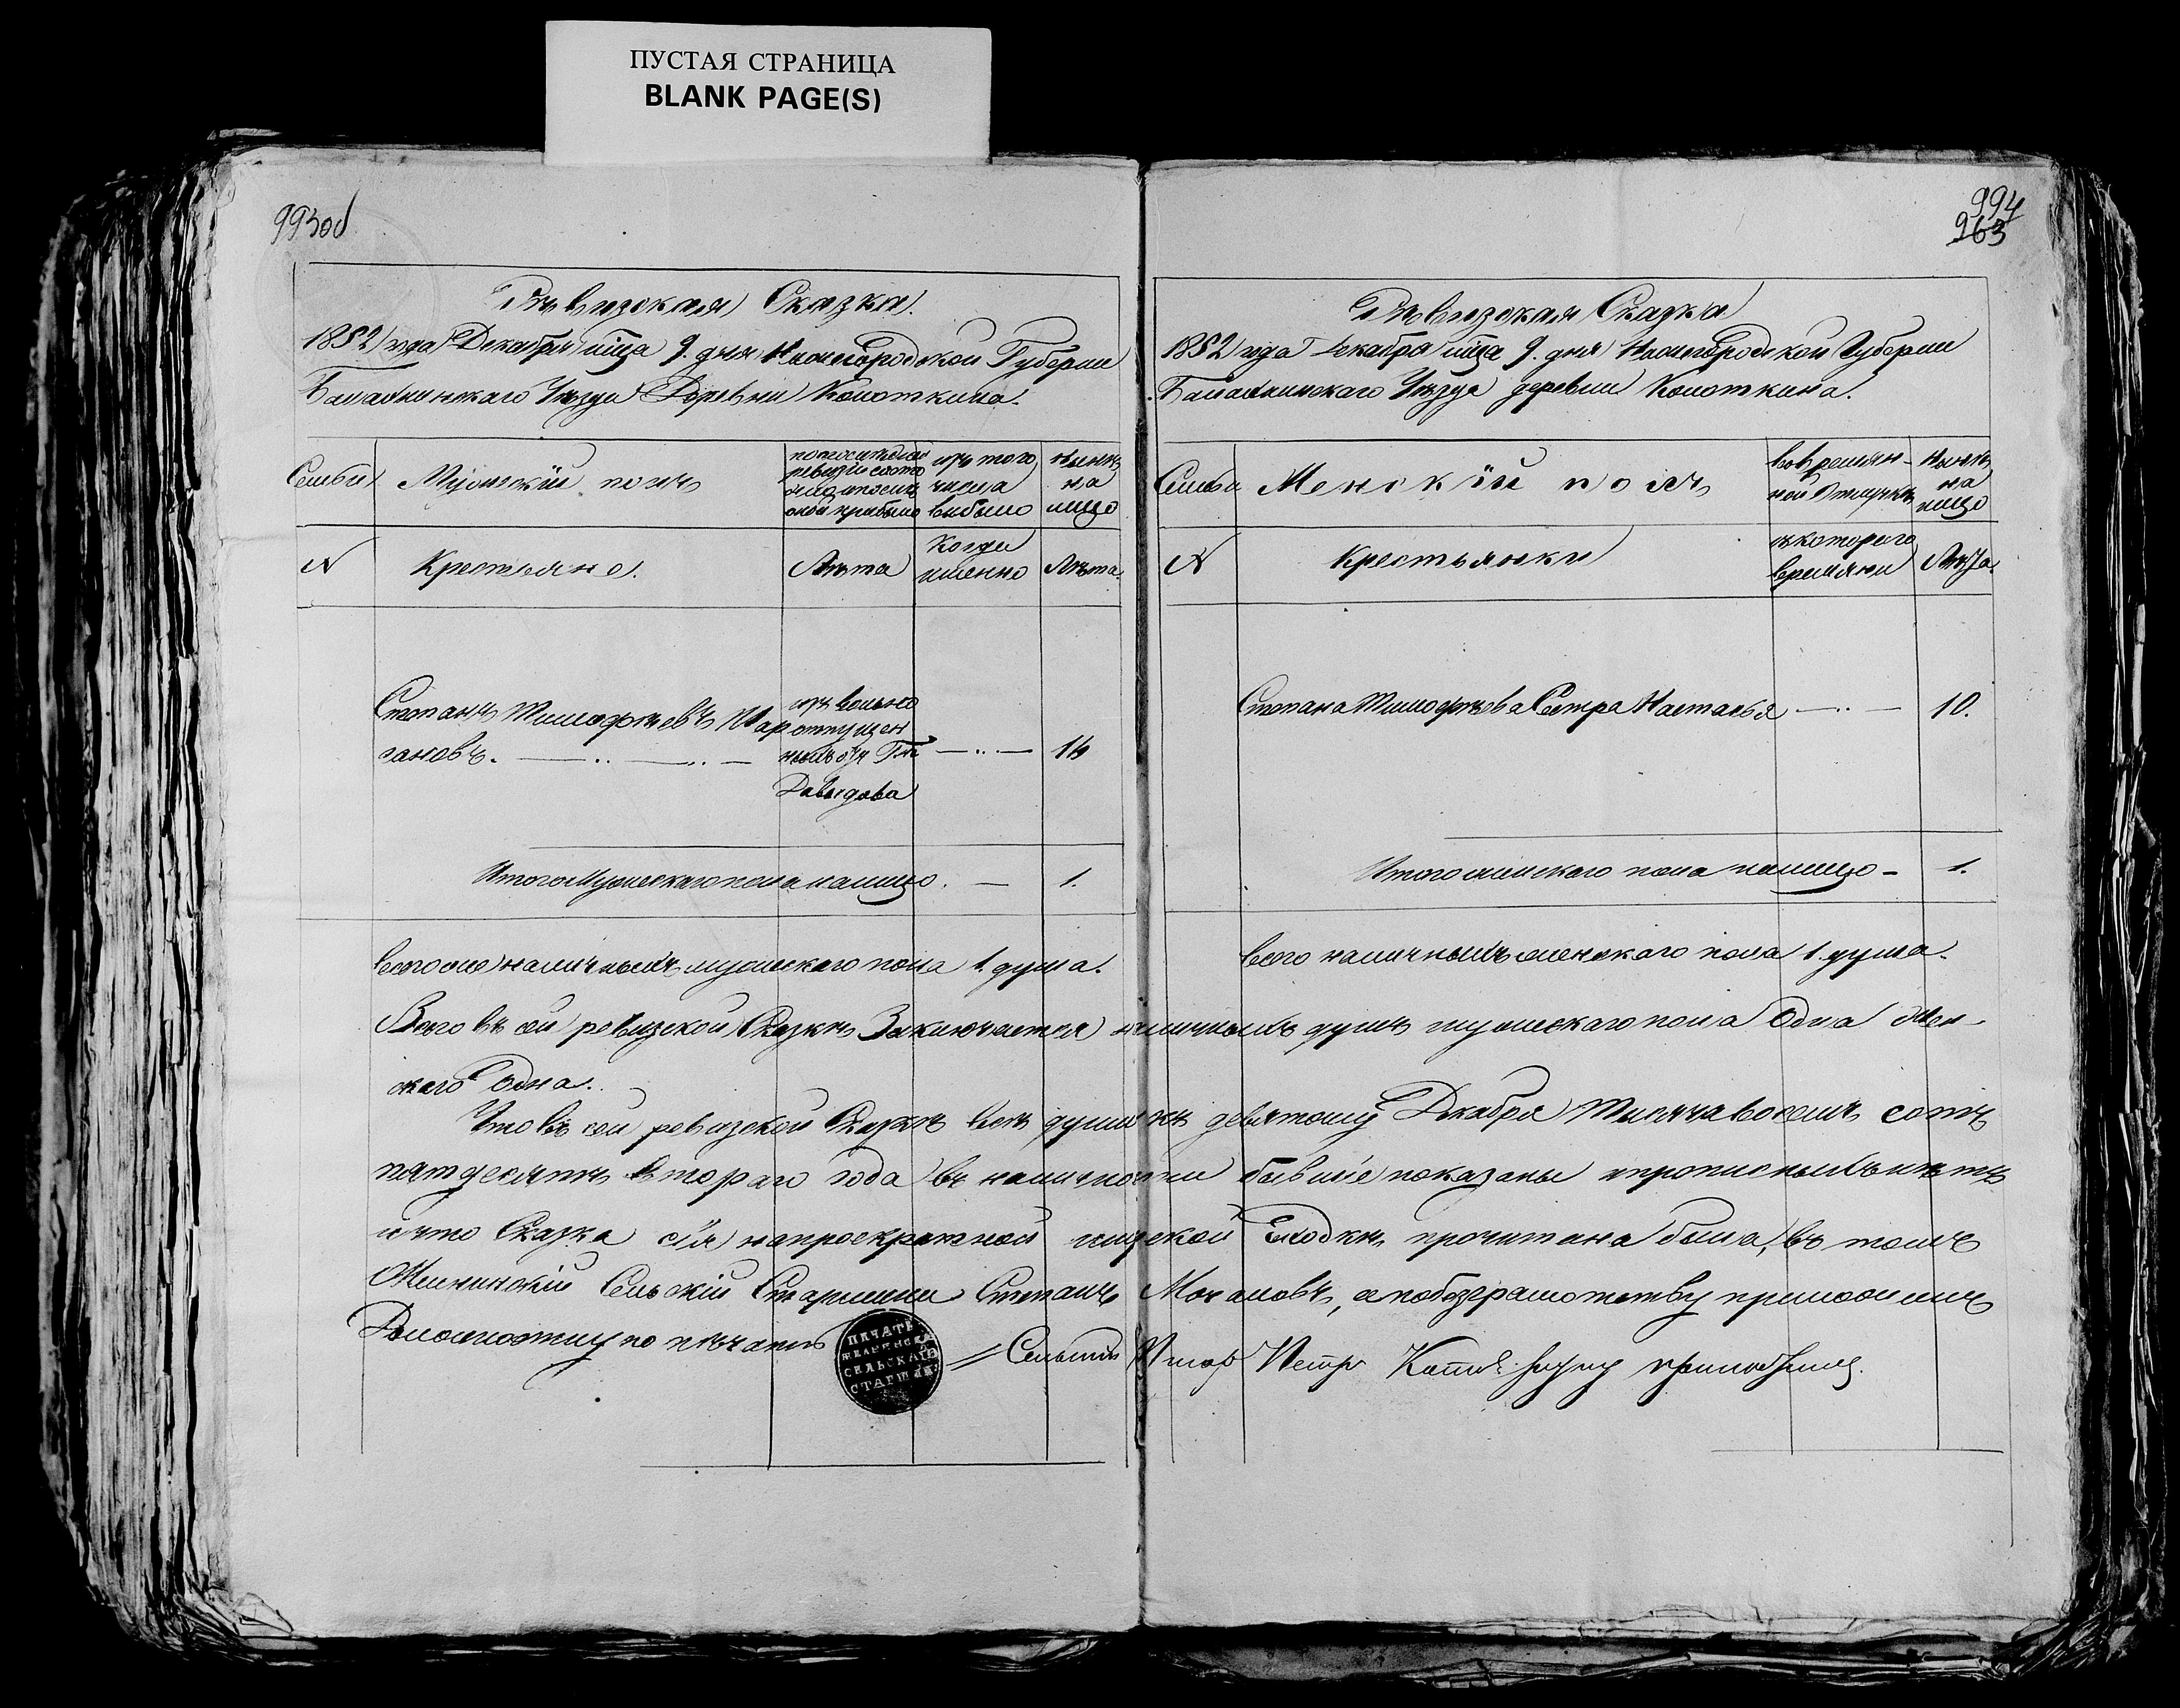 ПУСТАЯ СТРАНИЦА
BLANK PAGE(S)
993об
Ревизская Сказка.
1852 года Декабря мца 9. дня Нижегородской Губернии
Балахнинского Уезда Деревни Колоткина.
Семьи
Мужский полъ
по последней ревизии состояло и после оной прибыло
изъ того числа выбыло
ныне на лицо
№
Крестьяне.
Лета
Когда именно
Лета.
Степанъ Тимофеевъ Шар
гановъ.
изъ вольно
отпущен
ныхъ отъ Гна
Давыдова
14
Итого Мужескаго пола налицо. — 1.
всего же наличныхъ мужескаго пола 1. душа.
994
963
Ревизская Сказка
1852 года Декабря мца 9. дня Нижегородской Губернии
Балахнинскаго Уезда деревни Колоткина.
Семьи
Женскій полъ
во времян-
ной Отлучке
ныне
на
лицо
№
Крестьянки
съ котораго
времяни
Лета.
Степана Тимофеева Сестра Настасья
10.
Итого женскаго пола налицо - 1.
всего наличныхъ женскаго пола 1. душа.
Всего въ сей ревизской Сказке Заключается наличныхъ душъ мужескаго пола Одна Жен-
скаго Одна.
Что въ сей ревизской Сказке все души къ девятому Декабря Тысяча восемь сотъ
пятдесятъ втораго года въ наличности бывшіе показаны и прописныхъ нетъ
и что Сказка сія на проскражной мирской Сходке прочитана была, въ томъ
Желнинскій Сельскій Старшина Степанъ Мочаловъ, а по безграмотству приложилъ
Должностную печать
ПЕЧАТЬ
ЖЕЛНИНСКАГО
СЕЛЬСКАГО
СТАРШИНЫ
Сельский Писарь Петръ